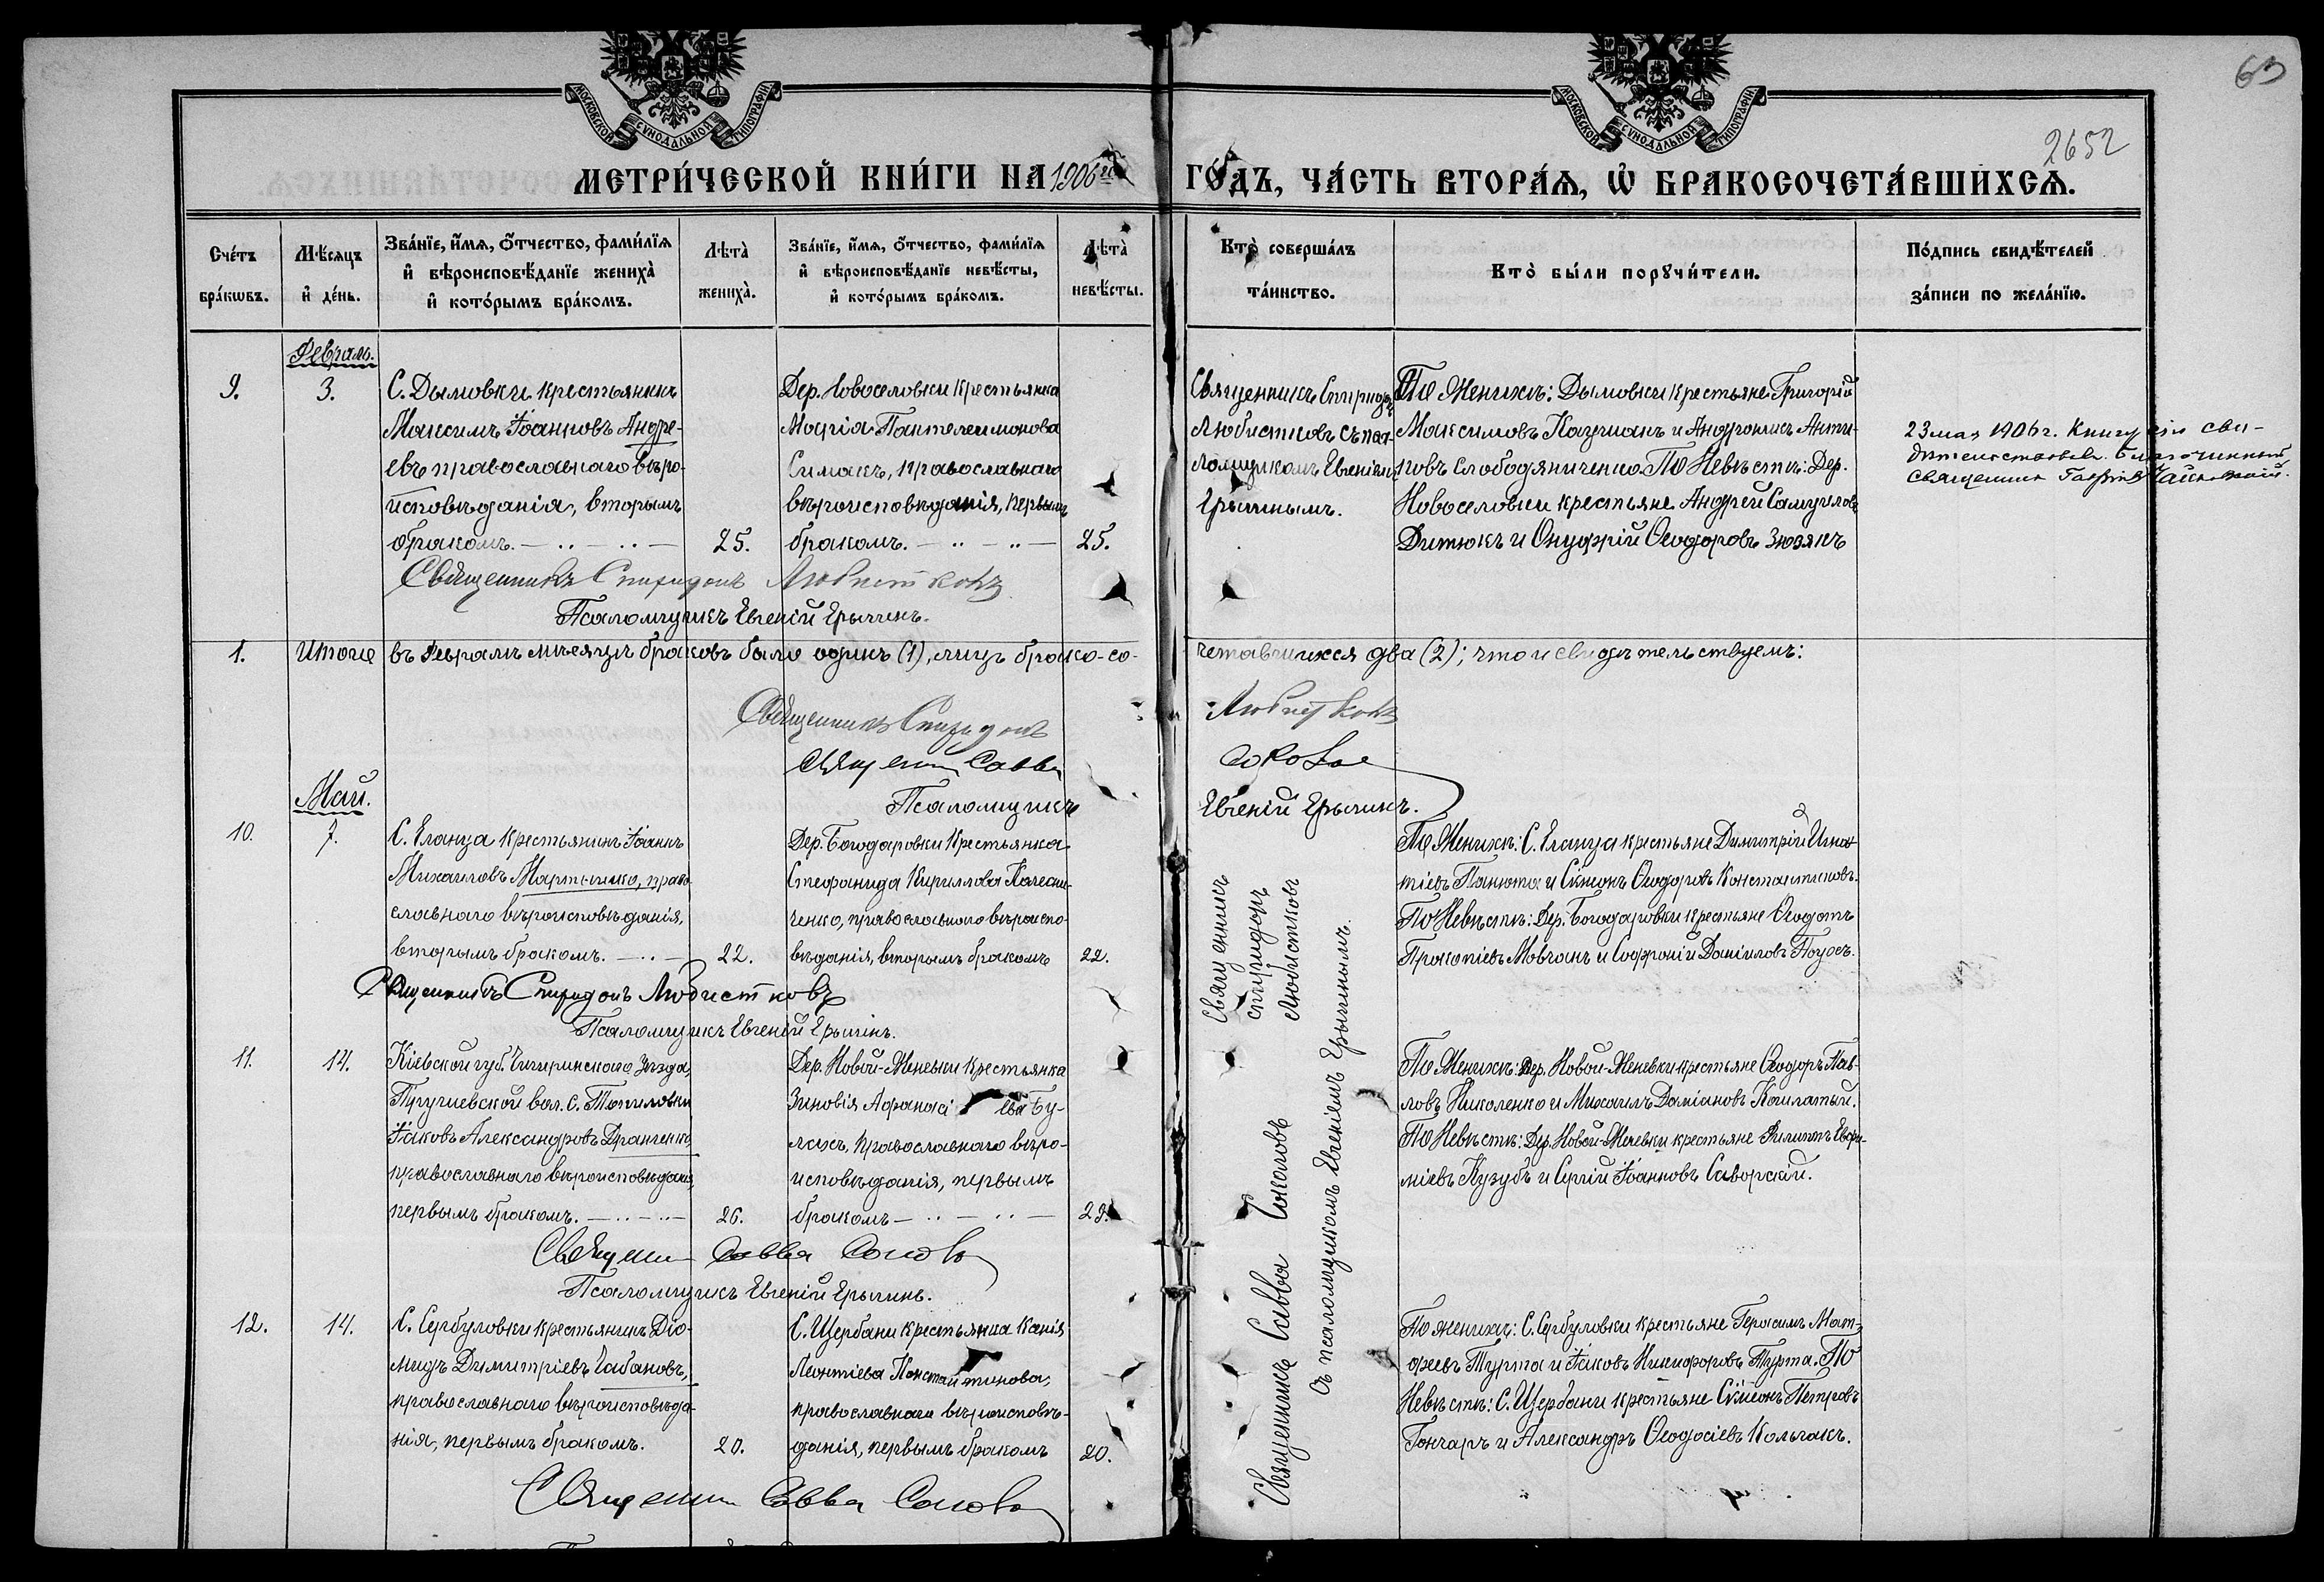 63
2652
МОСКОВСКОЙ СѴНОДАЛЬНОЙ ТИПОГРАФІИ
МОСКОВСКОЙ СѴНОДАЛЬНОЙ ТИПОГРАФІИ
МЕТРИ́ЧЕСКОЙ КНИ́ГИ НА 1906й ГО́ДЪ, ЧА́СТЬ ВТОРА́Я, Ѡ БРАКОСОЧЕТА́ВШИХСЯ.
Сче́тъ
бра́кѡвъ.
Мѣ́сяцъ
и де́нь.
Зва́нїе, и́мя, о́тчество, фами́лїя
и вѣроисповѣ́данїе жениха̀
и кото́рымъ бра́комъ.
Лѣ́та̀
жениха̀.
Зва́нїе, и́мя, о́тчество, фами́лїя
и вѣроисповѣ́данїе невѣ́сты,
и кото́рымъ бра́комъ.
Лѣ́та̀
невѣ́сты.
Кто̀ соверша́лъ
та́инство.
Кто̀ бы́ли порꙋчи́тели.
По́дпись свидѣ́телей
за́писи по жела́нїю.
Февраль.
9.
3.
С. Дымовки крестьянинъ
Максимъ Іоанновъ Андре-
евъ православнаго вѣро-
исповѣданія, вторымъ
бракомъ.
25.
Дер. Новоселовки крестьянка
Марія Пантелеимонова
Симакъ, православнаго
вѣроисповѣданія, первымъ
бракомъ.
25.
Священникъ Спиридонъ
Любистковъ съ пса-
ломщикомъ Евгеніемъ
Ерычинымъ.
По Женихѣ: Дымовки крестьяне Григорій
Максимовъ Кауцманъ и Андроникъ Анти-
повъ Слободяниченко. По Невѣстѣ: Дер.
Новоселовки крестьяне Андрей Самуиловъ
Дитюкъ и Онуфрій Ѳеодоровъ Зюзякъ
23 мая 1906 г. Книгу сію сви-
дительствовалъ Благочинный,
священник
Священникъ Спиридонъ Любистковъ
Псаломщикъ Евгеній Ерычинъ.
1.
Итого въ Февралѣ мѣсяцѣ браковъ было одинъ (1), лицъ брако-со-
четавшихся два (2); что и свидѣтельствуемъ:
Священникъ Спиридонъ Любистковъ
Священникъ Савва Соколов
Псаломщикъ Евгеній Ерычинъ.
Май.
10.
7.
С. Еланца крестьянинъ Іоаннъ
Михаиловъ Мартыненко, право-
славнаго вѣроисповѣданія,
вторымъ бракомъ.
22.
Дер. Богодаровки крестьянка
Стефанида Кириллова Колесни-
ченко, православнаго вѣроиспо-
вѣданія, вторымъ бракомъ
22.
По Женихѣ: С. Еланца крестьяне Димитрій Игна-
тіевъ Панюта и Сѵмеонъ Ѳеодоровъ Константиновъ.
По Невѣстѣ: Дер. Богодаровки крестьяне Ѳеодотъ
Прокопіевъ Мовчанъ и Софроній Даніиловъ Поусъ.
Священникъ Спиридонъ Любистковъ
Псаломщикъ Евгеній Ерычинъ.
Священникъ
Спиридонъ
Любистковъ
Священникъ Савва Соколовъ
съ псаломщикомъ Евгеніемъ Ерычинымъ.
11.
14.
Кіевской губ. Чигиринскаго уѣзда,
вол. с. Топиловки
Іаковъ Александровъ Дранченко,
православнаго вѣроисповѣданія,
первымъ бракомъ.
26.
Дер. Новой-Женевки крестьянка
Зиновія Афанасіева Бу-
лахъ, православнаго вѣро-
исповѣданія, первымъ
бракомъ
По Женихѣ: Дер. Новой-Женевки крестьяне Ѳеодоръ Пав-
ловъ Николенко и Михаилъ Даміановъ Кошлатый.
По Невѣстѣ: Дер. Новой-Женевки крестьяне Филиппъ Евфи-
міевъ Кузубъ и Сергій Іоанновъ Саворскій.
Священник Савва Соколов
Псаломщикъ Евгеній Ерычинъ.
12.
14.
С. Сербуловки крестьянинъ Діо-
мидъ Димитріевъ Чабановъ,
православнаго вѣроисповѣда-
нія, первымъ бракомъ.
20.
С. Щербани крестьянка Ксенія
Леонтіева Константинова,
православнаго вѣроисповѣ-
данія, первымъ бракомъ
20.
По женихѣ: С. Сербуловки крестьяне Герасимъ Мат-
феевъ Турта и Іаковъ Никифоровъ Турта. По
Невѣстѣ: С. Щербани крестьяне Сѵмеонъ Петровъ
Гончаръ и Александръ Ѳеодосіевъ Колчакъ.
Священник Савва Соколов